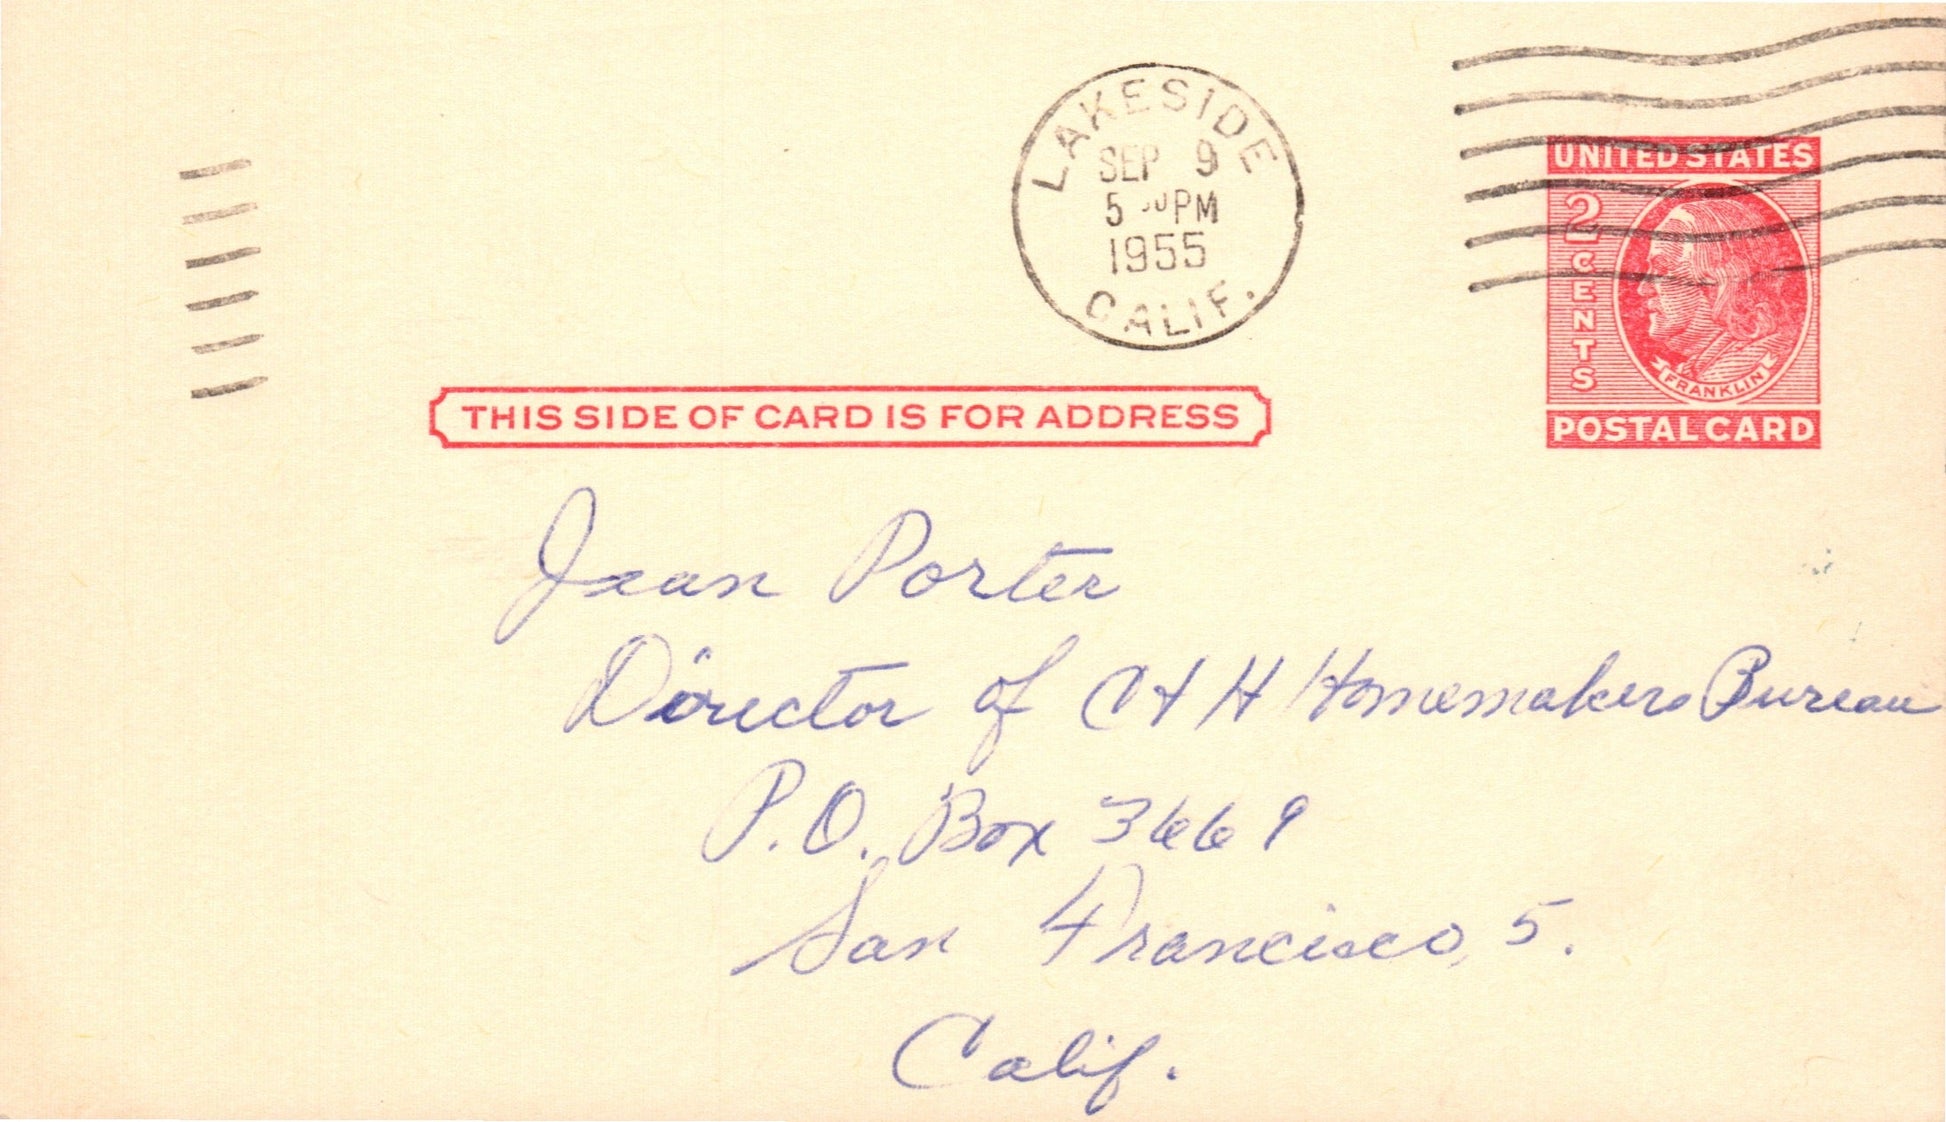 LAKESIDE
SEP 9
5 30 PM
1955
CALIF.
UNITED STATES
2 CENTS
FRANKLIN
POSTAL CARD
THIS SIDE OF CARD IS FOR ADDRESS
Jean Porter
Director of C & H Homemakers Bureau
P.O. Box 3669
San Francisco, 5.
Calif.